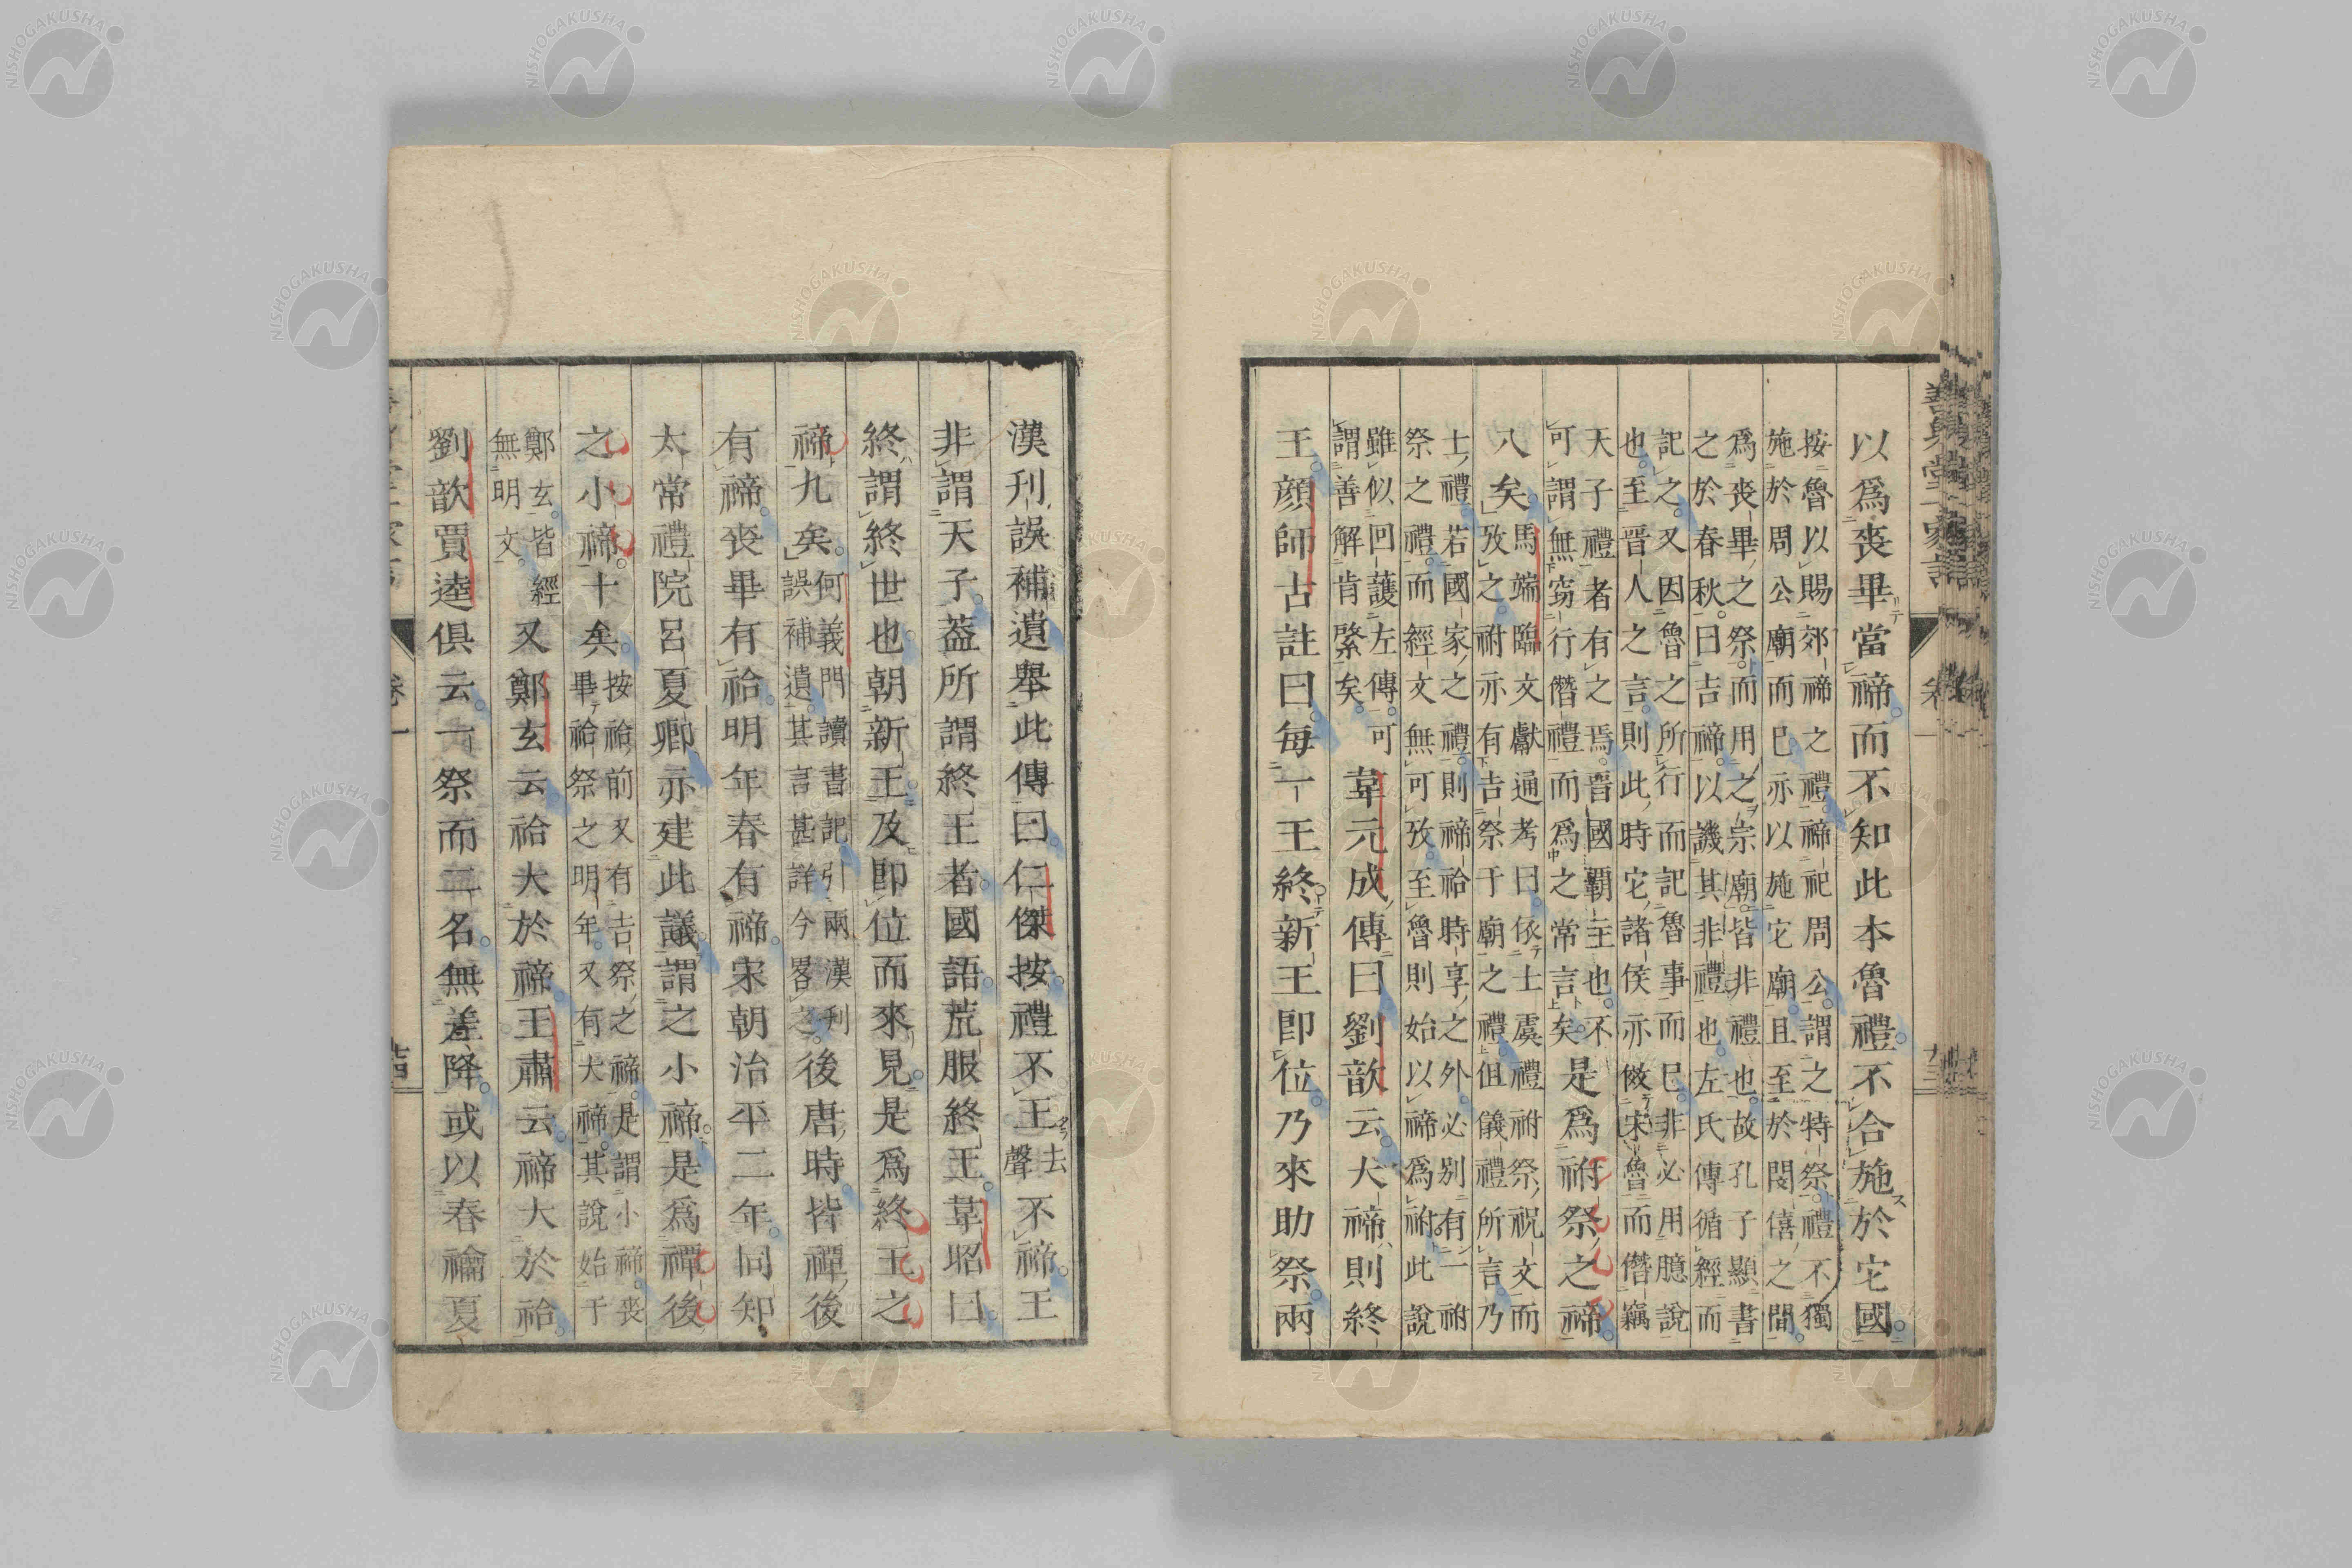 以爲喪畢當禘而不知此本魯禮不合施於它國
按魯以賜郊禘之禮禘祀周公謂之特祭禮不獨
施於周公廟而已亦以施它廟且至於閔僖之間
爲喪畢之祭而用之宗廟皆非禮也故孔子顯書
之於春秋曰吉禘以譏其非禮也左氏傳循經而
記之又因魯之所行而記魯事而已非必用臆說
也至晋人之言則此時它諸侯亦傚宋魯而僭竊
天子禮者有之焉晋國覇主也不
可謂無窈行僭禮而爲之常言矣
是爲祔祭之禘
八矣
馬端臨文獻通考曰依士虞禮祔祭祝文而
攷之祔亦有吉祭于廟之禮但儀禮所言乃
士禮若國家之禮則禘祫時享之外必別有一祔
祭之禮而經文無可攷至魯則始以禘爲祔此說
雖似回護左傳可
謂善解肯綮矣
韋元成傳曰劉歆云大禘則終
王顔師古註曰每一王終新王卽位乃來助祭兩
漢刊誤補遺舉此傳曰仁傑按禮不王去聲不禘王
非謂天子葢所謂終王者國語荒服終王韋昭曰
終謂終世也朝新王及卽位而來見是爲終王之
禘九矣
何義門讀書記引兩漢刊
誤補遺其言甚詳今畧之
後唐時皆禫後
有禘喪畢有祫明年春有禘宋朝治平二年同知
太常禮院呂夏卿亦建此議謂之小禘是爲禫後
之小禘十矣
按祫前又有吉祭之禘是謂小禘喪
畢祫祭之明年又有大禘其說始于
鄭玄皆經
無明文
又鄭玄云祫大於禘王肅云禘大於祫
劉歆賈逵俱云一祭而二名無差降或以春禴夏